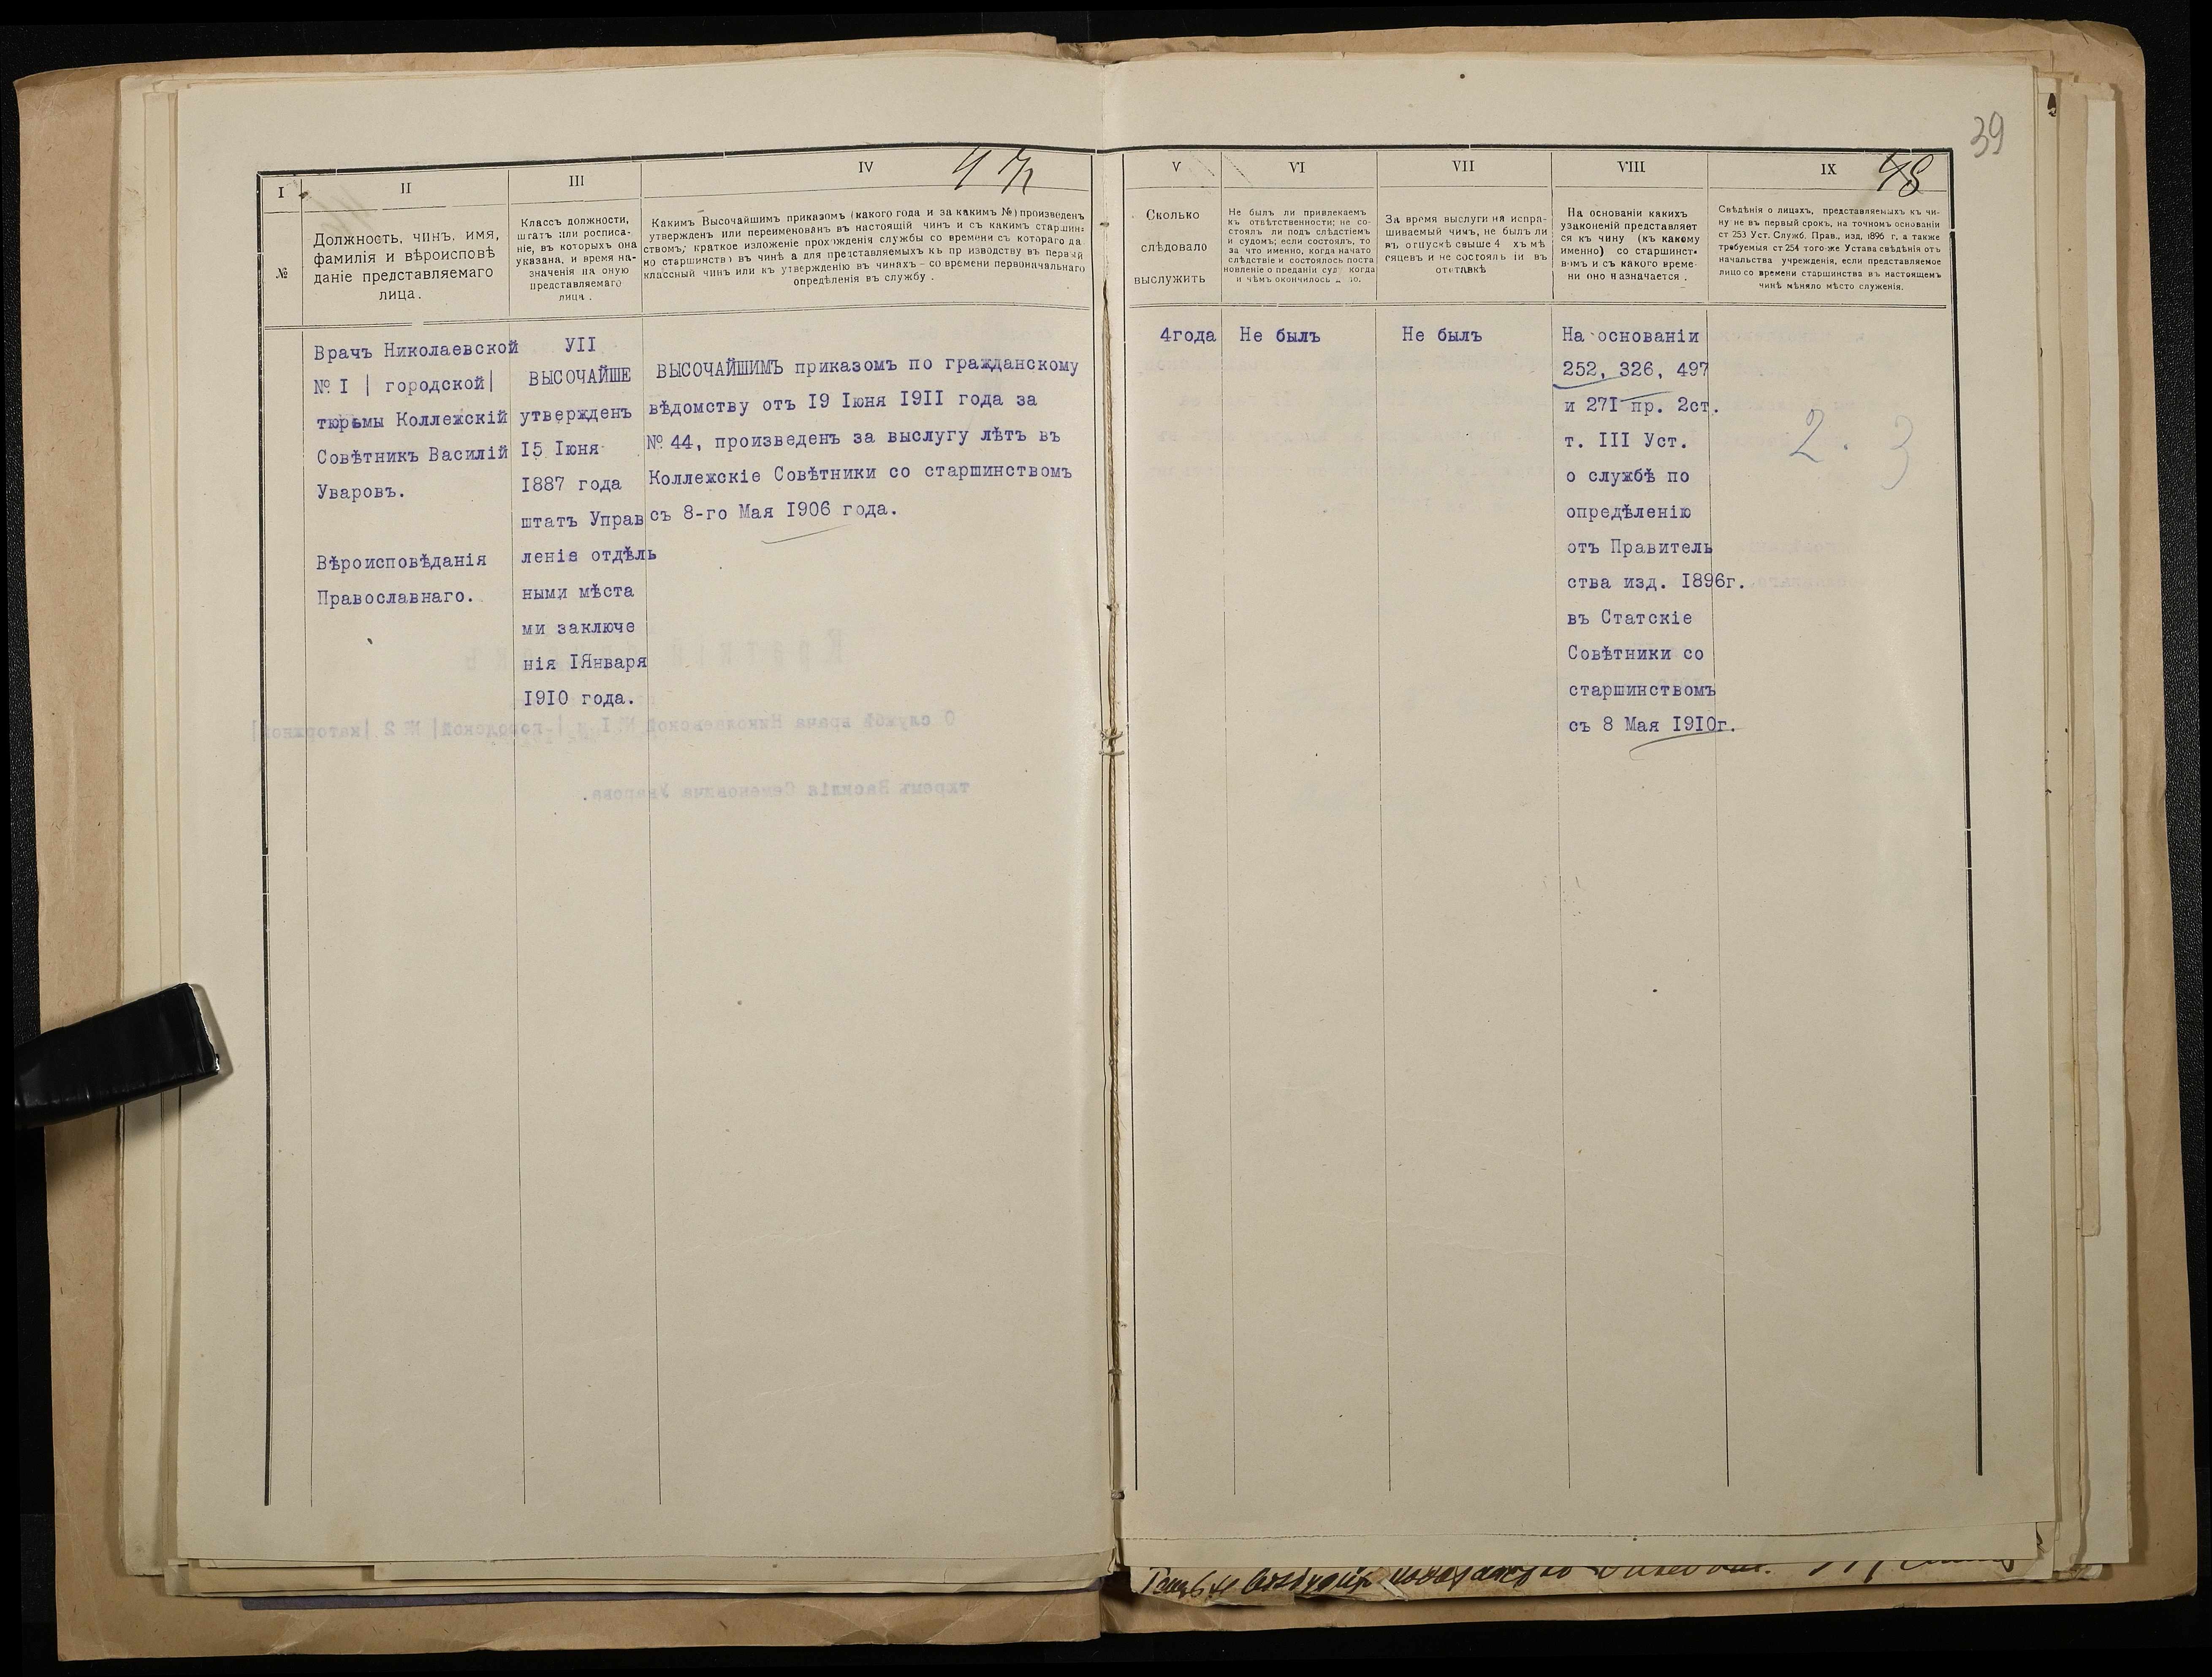 39
I
II
III
IV
47
№
Должность, чинъ, имя,
фамилія и вѣроисповѣ
даніе представляемаго
лица.
Классъ должности,
штатъ или росписа-
ніе, въ которыхъ она
указана, и время на-
значенія на оную
представляемаго
лица.
Какимъ Высочайшимъ приказомъ (какого года и за какимъ №) произведенъ
утвержденъ или переименованъ въ настоящій чинъ и съ какимъ старшин-
ствомъ; краткое изложеніе прохожденія службы со времени съ котораго да
но старшинство въ чинѣ а для представляемыхъ къ пр изводству въ первый
классный чинъ или къ утвержденію въ чинахъ – со времени первоначальнаго
опредѣленія въ службу.
Врачъ Николаевской
№ I | городской|
тюрьмы Коллежскій
Совѣтникъ Василій
Уваровъ.
Вѣроисповѣданія
Православнаго.
УІІ
ВЫСОЧАЙШЕ
утвержденъ
I5 Іюня
I887 года
штатъ Управ
ленія отдѣль
ными мѣста
ми заключе
нія IЯнваря
I9I0 года.
ВЫСОЧАЙШИМЪ приказомъ по гражданскому
вѣдомству отъ I9 Іюня I9II года за
№ 44, произведенъ за выслугу лѣтъ въ
Коллежскіе Совѣтники со старшинствомъ
съ 8-го Мая I906 года.
V
VI
VII
VIII
IX
48
Сколько
слѣдовало
выслужить
Не былъ ли привлекаемъ
къ отвѣтственности; не со-
стоялъ ли подъ слѣдствіемъ
и судомъ; если состоялъ, то
за что именно, когда начато
слѣдствіе и состоялось поста
новленіе о преданіи суду когда
и чѣмъ окончилось
За время выслуги на испра-
шиваемый чинъ, не былъ ли
въ отпускѣ свыше 4 хъ мѣ
сяцевъ и не состоялъ ли въ
отставкѣ
На основаніи какихъ
узаконеній представляет
ся къ чину (къ какому
именно) со старшинст-
вомъ и съ какого време-
ни оно назначается.
Свѣдѣнія о лицахъ, представляемыхъ къ чи-
ну не въ первый срокъ, на точномъ основаніи
ст 253 Уст. Служб. Прав., изд. 1896 г, а также
требуемыя ст 254 того-же Устава свѣдѣнія отъ
начальства учрежденія, если представляемое
лицо со времени старшинства въ настоящемъ
чинѣ мѣняло мѣсто служенія.
4года
Не былъ
Не былъ
На основаніи
252, 326, 497
и 27I пр. 2ст.
т. III Уст.
о службѣ по
опредѣленію
отъ Правитель
ства изд. I896г.
въ Статскіе
Совѣтники со
старшинствомъ
съ 8 Мая I9I0г.
2. 3